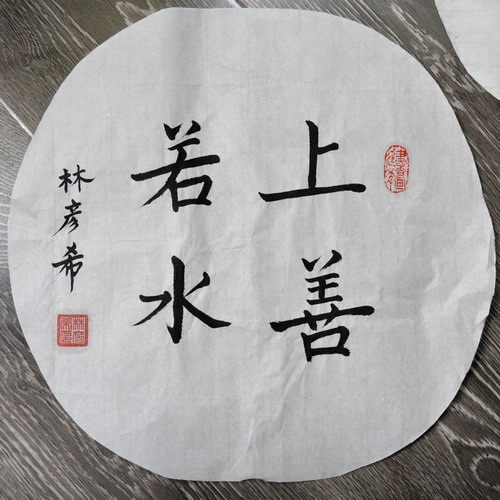 上善
若水
林彦希